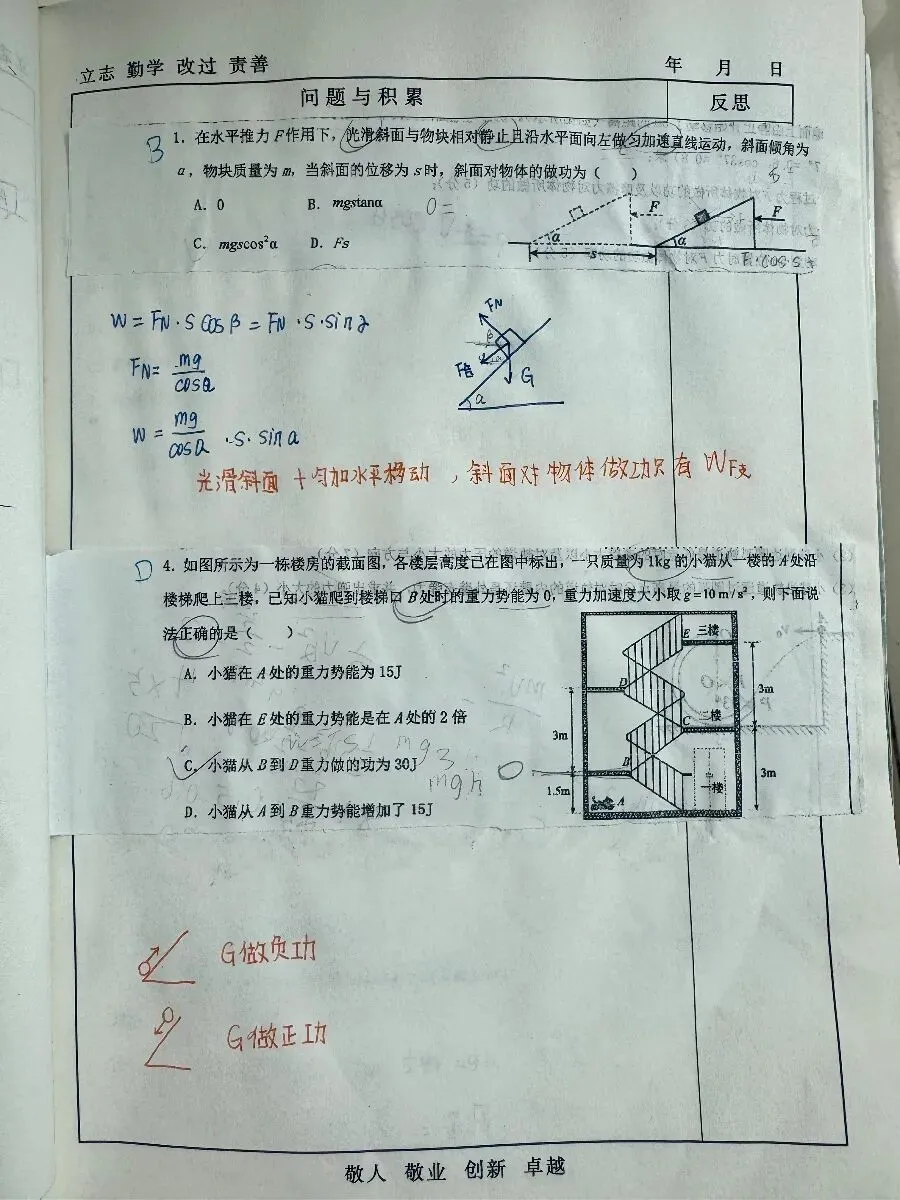 立志 勤学 改过 责善
年 月 日
问题与积累
反思
B
1. 在水平推力F作用下，光滑斜面与物块相对静止且沿水平面向左做匀加速直线运动，斜面倾角为
α，物块质量为m，当斜面的位移为s时，斜面对物体的做功为（ ）
A. 0 B. mgstanα
C. mgscos²α D. Fs
F
F
α
α
s
W = FN·S cosβ = FN·S·sin2
FN = mg/cosα
W = mg/cosα ·S·sina
FN
β
F合
G
α
光滑斜面 + 匀加水平移动，斜面对物体做功只有WF支
D
4. 如图所示为一栋楼房的截面图，各楼层高度已在图中标出，一只质量为1kg的小猫从一楼的A处沿
楼梯爬上三楼，已知小猫爬到楼梯口B处时的重力势能为0，重力加速度大小取g=10m/s²，则下面说
法正确的是（ ）
A. 小猫在A处的重力势能为15J
B. 小猫在E处的重力势能是在A处的2倍
C. 小猫从B到D重力做的功为30J
mg3
mgh
D. 小猫从A到B重力势能增加了15J
E
三楼
D
3m
C
二楼
3m
B
3m
1.5m
A
一楼
G做负功
G做正功
敬人 敬业 创新 卓越